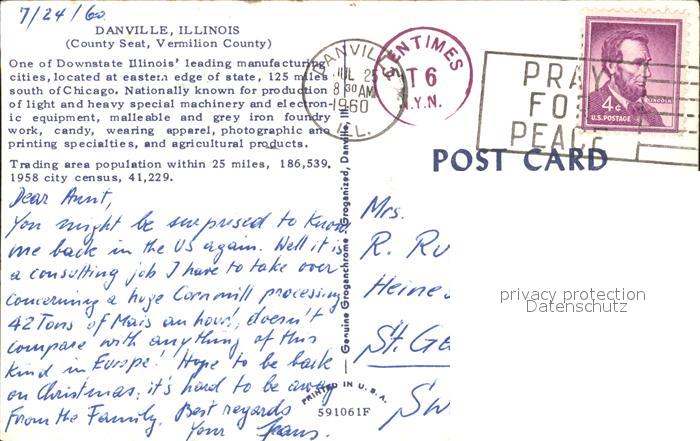 7/24/60
DANVILLE, ILLINOIS
(County Seat, Vermilion County)
One of Downstate Illinois' leading manufacturing
cities, located at eastern edge of state, 125 miles
south of Chicago. Nationally known for production
of light and heavy special machinery and electron-
ic equipment, malleable and grey iron foundry
work, candy, wearing apparel, photographic and
printing specialties, and agricultural products.
Trading area population within 25 miles, 186,539.
1958 city census, 41,229.
Dear Aunt,
You might be surprised to know
me back in the US again. Well it is
a consulting job I have to take over
concerning a huge Cornmill processing
42 Tons of Mais an hour!, doesn't
compare with anything of this
kind in Europe! Hope to be back
on Christmas, it's hard to be away
from the Family. Best regards
Your Hans.
Genuine Groganchrome, Groganized, Danville, Ill.
PRINTED IN U.S.A.
591061F
DANVILLE
JUL 25
8 30 AM
1960
ILL.
TEN TIMES
T 6
N.Y.N.
PRAY
FOR
PEACE
4¢
LINCOLN
U.S. POSTAGE
POST CARD
Mrs.
R. Ru
Heine
St. Ga
Sw
privacy protection
Datenschutz